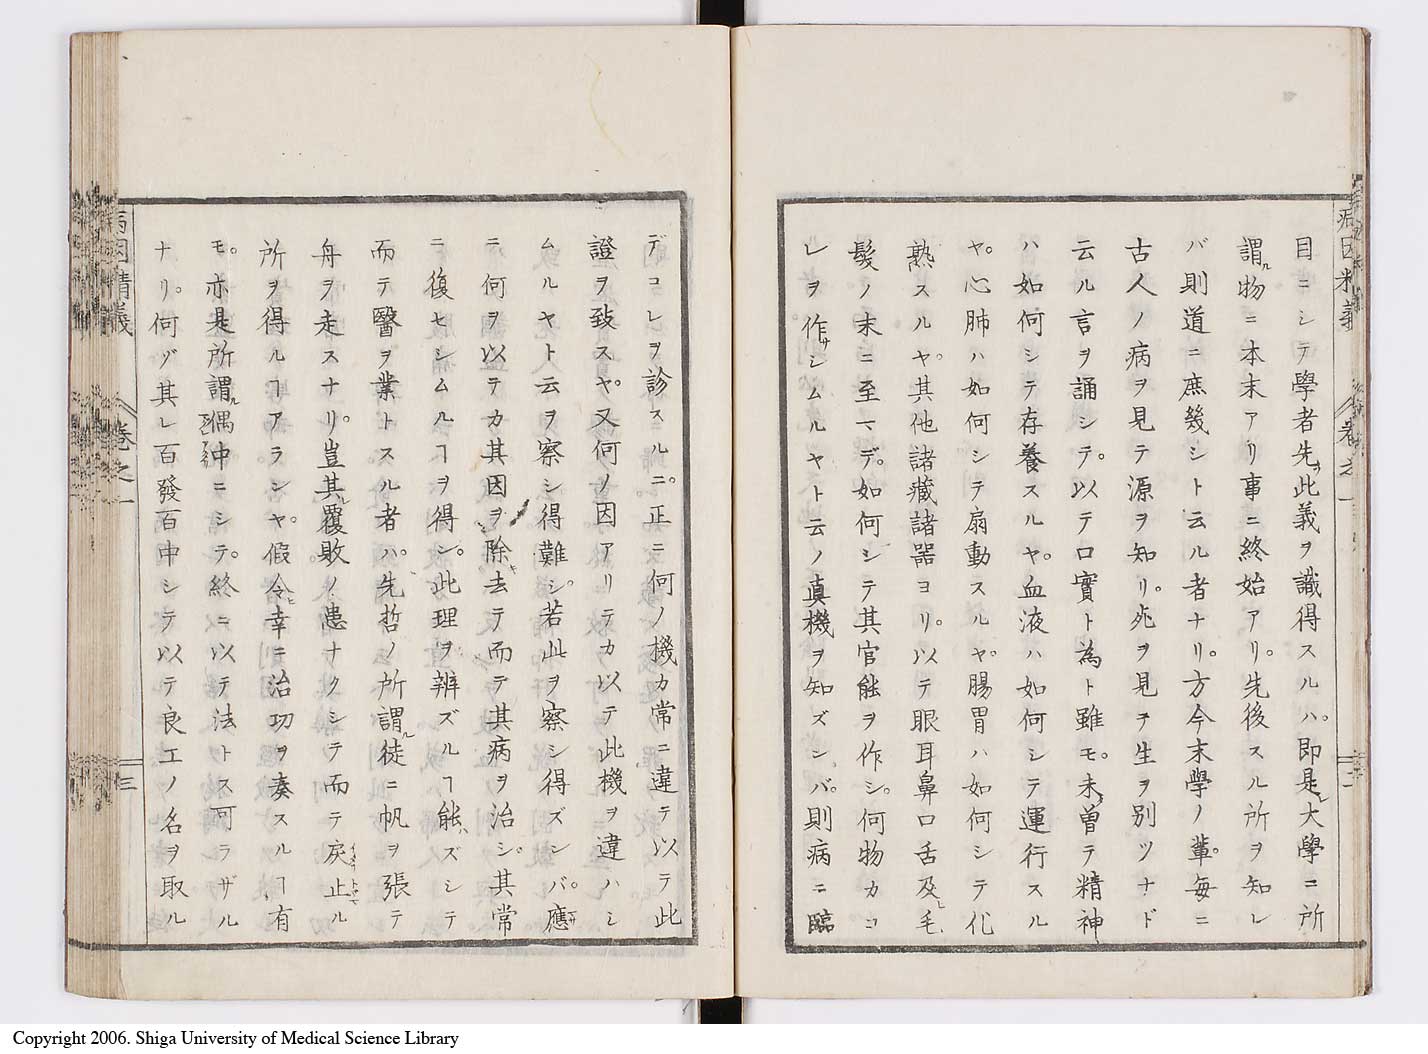 目ニシテ學者先此義ヲ識得スルハ。即是大學ニ所
謂ル物ニ本末アリ事ニ終始アリ。先後スル所ヲ知レ
バ則道ニ庶幾シト云ル者ナリ。方今末學ノ輩。毎ニ
古人ノ病ヲ見テ源ヲ知リ。死ヲ見テ生ヲ別ツナド
云ル言ヲ誦シテ。以テ口實ト為ト雖モ。未曽テ精神
ハ如何シテ存養スルヤ。血液ハ如何シテ運行スル
ヤ。心肺ハ如何シテ扇動スルヤ。腸胃ハ如何シテ化
熟スルヤ。其他諸藏諸器ヨリ。以テ眼耳鼻口舌及ヒ毛
髮ノ末ニ至マデ。如何シテ其官能ヲ作シ。何物カコ
レヲ作サシムルヤト云ノ真機ヲ知ズンバ。則病ニ臨
デコレヲ診スルニ。正ニ何ノ機カ常ニ違テ以テ此
證ヲ致スヤ。又何ノ因アリテカ以テ此機ヲ違ハシ
ムルヤト云ヲ察シ得難シ。若此ヲ察シ得ズンバ。應サ
ニ何ヲ以テカ其因ヲ除キ去テ而テ其病ヲ治シ。其常
ニ復セシムルヿヲ得シ。此理ヲ辨ズルヿ能ハズシテ
而テ醫ヲ業トスル者ハ。先哲ノ所謂ル徒ニ帆ヲ張テ
舟ヲ走スナリ。豈其レ覆敗ノ患ナクシテ而テ戻止ル
所ヲ得ルヿアランヤ。假令ヒ幸ニ治功ヲ奏スルヿ有
モ。亦是所謂ル偶中ニシテ。終ニ以テ法トス可ラザル
ナリ。何ゾ其レ百發百中シテ以テ良工ノ名ヲ取ル
病因精義
卷之一
三
Copyright 2006. Shiga University of Medical Science Library